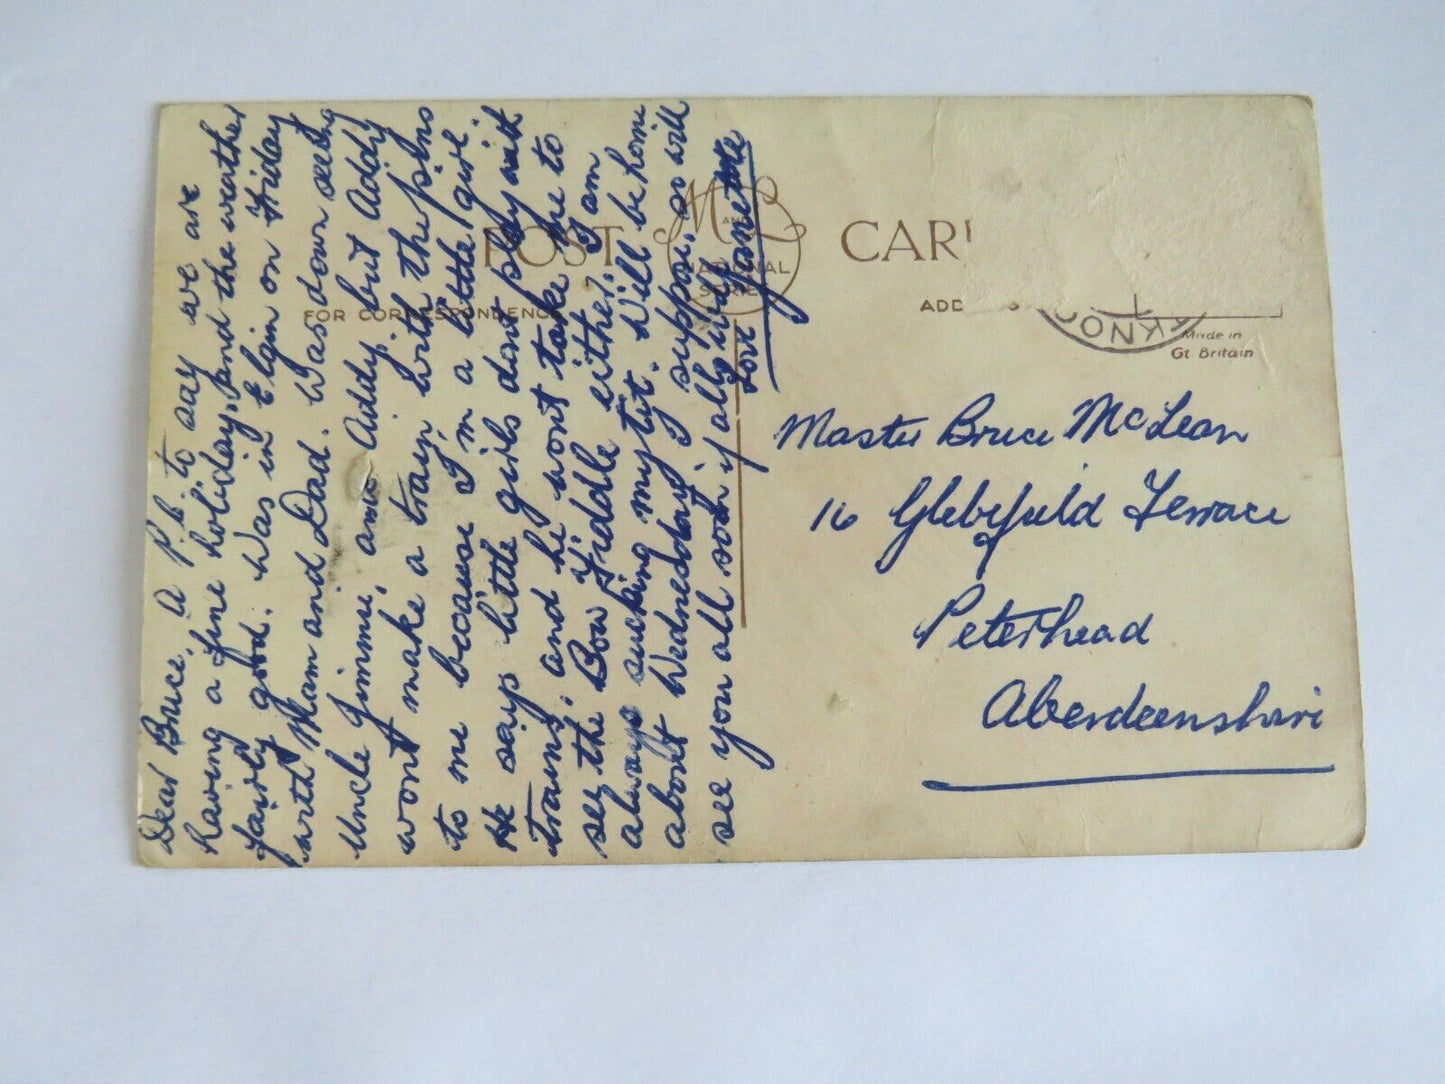 Dear Bruce, A P.C. to say we are
having a fine holiday, and the weather
fairly good. Was in Elgin on Friday
with Mam and Dad. Was down seeing
Uncle Jimmie, and Addy, but Addy
wont make a train with the pins
to me because I'm a little girl.
He says little girls dont play with
trains, and he wont take me to
see the Bow Fiddle either. I am
always sucking my tit. Will be home
about Wednesday I suppose, so will
see you all soon if all well
Love Janette
POST CAR
M AND L
NATIONAL
SERIES
FOR CORRESPONDENCE
ADD S
KNOC
Made in
Gt. Britain
Master Bruce McLean
16 Glebefield Terrace
Peterhead
Aberdeenshire